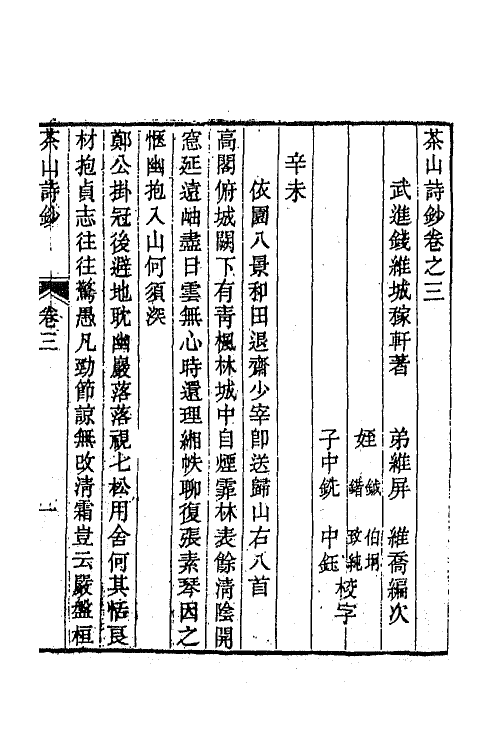 茶山詩鈔卷之三
武進錢維城稼軒著　弟維屏　維喬編次
姪　鉞　伯坰
鐠　致純
校字
子中銑　中鈺
辛未
依園八景和田退齋少宰卽送歸山右八首
高閣俯城闕下有靑楓林城中自煙霏林表餘淸陰開
窻延遠岫盡日雲無心時還理緗帙聊復張素琴因之
愜幽抱入山何須深
鄭公掛冠後避地耽幽巖落落視七松用舍何其恬良
材抱貞志往往驚愚凡勁節諒無改淸霜豈云嚴盤桓
茶山詩鈔　卷三　一